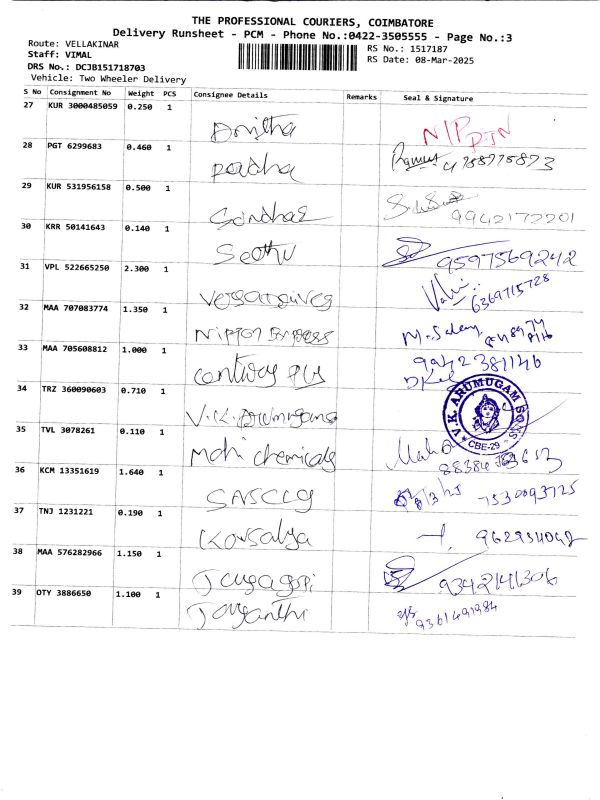 THE PROFESSIONAL COURIERS, COIMBATORE
Delivery Runsheet - PCM - Phone No.:0422-3505555 - Page No.:3
Route: VELLAKINAR
RS No.: 1517187
Staff: VIMAL
RS Date: 08-Mar-2025
DRS No.: DCJB151718703
Vehicle: Two Wheeler Delivery
S No Consignment No Weight PCS Consignee Details Remarks Seal & Signature
27 KUR 3000485059 0.250 1
28 PGT 6299683 0.460 1 Padha
29 KUR 531956158 0.500 1 9942172201
30 KRR 50141643 0.140 1 Sethu 9597569242
31 VPL 522665250 2.300 1 6369715728
32 MAA 707083774 1.350 1 Nippon Express
33 MAA 705608812 1.000 1 Century Ply 9942381146
34 TRZ 360090603 0.710 1 V.K. Arumugam V.K. ARUMUGAM SONS CBE-29
35 TVL 3078261 0.110 1 Mohi chemicals
36 KCM 13351619 1.640 1 7530093725
37 TNJ 1231221 0.190 1 Kowsalya
38 MAA 576282966 1.150 1 9342141306
39 OTY 3886650 1.100 1 Jayanthi 9361491984